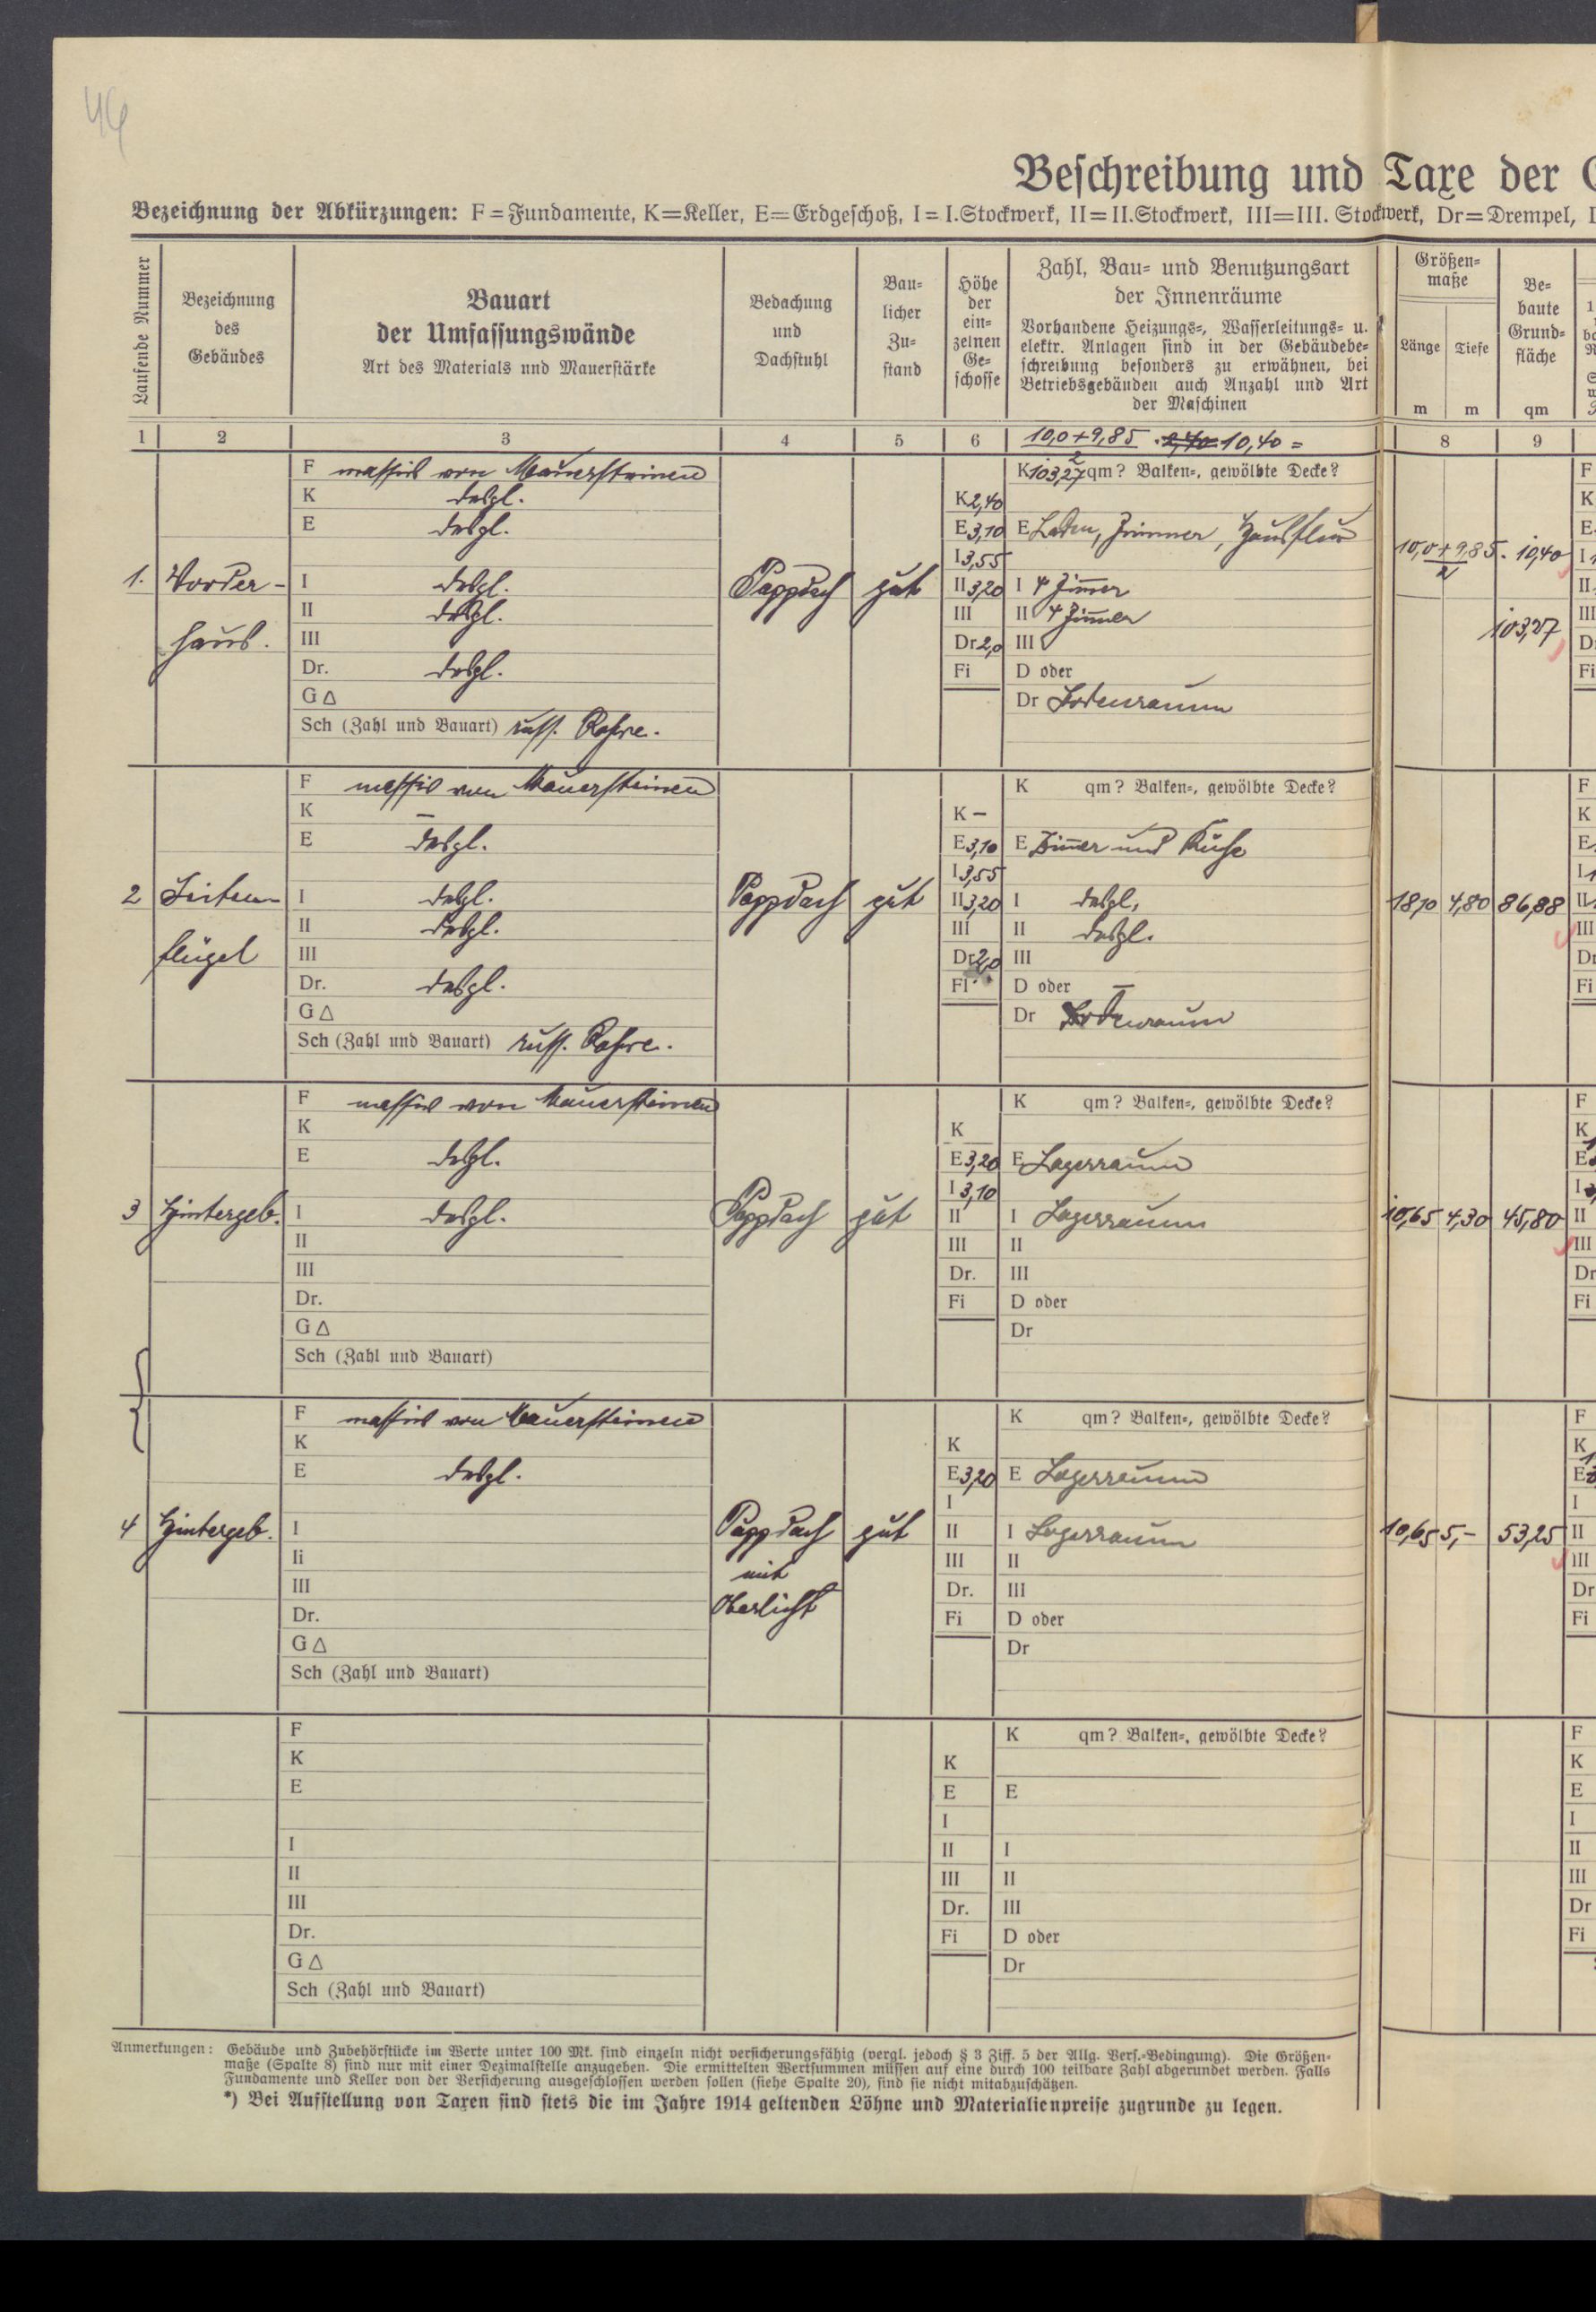 44
Beschreibung und Taxe der G
Bezeichnung der Abkürzungen: F=Fundamente, K=Keller, E=Erdgeschoß, I=I.Stockwerk, II=II.Stockwerk, III=III. Stockwerk, Dr=Drempel,
Laufende Nummer
Bezeichnung
des
Gebäudes
Bauart
der Umfassungswände
Art des Materials und Mauerstärke
Bedachung
und
Dachstuhl
Bau-
licher
Zu-
stand
Höhe
der
ein-
zelnen
Ge-
schosse
Zahl, Bau- und Benutzungsart
der Innenräume
Vorhandene Heizungs-, Wasserleitungs- u.
elektr. Anlagen sind in der Gebäudebe-
schreibung besonders zu erwähnen, bei
Betriebsgebäuden auch Anzahl und Art
der Maschinen
Größen-
maße
Länge Tiefe
m m
Be-
baute
Grund-
fläche
qm
1 2 3 4 5 6 8 9
10,0+9,85 . 2,40 10,40 =
2
1. Vorder-
haus.
F massiv von Mauersteinen
K desgl.
E desgl.
I desgl.
II desgl.
III
Dr. desgl.
G △
Sch (Zahl und Bauart) russ. Rohre.
Pappdach
gut
K 2,40
E 3,10
I 3,55
II 3,20
III
Dr 2,0
Fi
K 103,27 qm? Balken-, gewölbte Decke?
E Laden, Zimmer, Hausflur
I 4 Zim̄er
II 4 Zim̄er
III
D oder
Dr Bodenraum
10,0+9,85 . 10,40
2
103,27
2 Seiten-
flügel
F massiv von Mauersteinen
K –
E desgl.
I desgl.
II desgl.
III
Dr. desgl.
G △
Sch (Zahl und Bauart) russ. Rohre.
Pappdach
gut
K –
E 3,10
I 3,55
II 3,20
III
Dr 2,0
Fi
K qm? Balken-, gewölbte Decke?
E Zim̄er und Küche
I desgl.
II desgl.
III
D oder –
Dr Bodenraum
18,10 4,80 86,88
3 Hintergeb.
F massiv von Mauersteinen
K
E desgl.
I desgl.
II
III
Dr.
G △
Sch (Zahl und Bauart)
Pappdach
gut
K
E 3,20
I 3,10
II
III
Dr.
Fi
K qm? Balken-, gewölbte Decke?
E Lagerraum
I Lagerraum
II
III
D oder
Dr
10,65 4,30 45,80
4 Hintergeb.
F massiv von Mauersteinen
K
E desgl.
I
Ii
III
Dr.
G △
Sch (Zahl und Bauart)
Pappdach
mit
Oberlicht
gut
K
E 3,20
I
II
III
Dr.
Fi
K qm? Balken-, gewölbte Decke?
E Lagerraum
I Lagerraum
II
III
D oder
Dr
10,65 5,– 53,25
F
K
E
I
II
III
Dr.
G △
Sch (Zahl und Bauart)
K
E
I
II
III
Dr.
Fi
K qm? Balken-, gewölbte Decke?
E
I
II
III
D oder
Dr
Anmerkungen: Gebäude und Zubehörstücke im Werte unter 100 Mk. sind einzeln nicht versicherungsfähig (vergl. jedoch § 3 Ziff. 5 der Allg. Vers.-Bedingung). Die Größen-
maße (Spalte 8) sind nur mit einer Dezimalstelle anzugeben. Die ermittelten Wertsummen müssen auf eine durch 100 teilbare Zahl abgerundet werden. Falls
Fundamente und Keller von der Versicherung ausgeschlossen werden sollen (siehe Spalte 20), sind sie nicht mitabzuschätzen.
*) Bei Aufstellung von Taxen sind stets die im Jahre 1914 geltenden Löhne und Materialienpreise zugrunde zu legen.